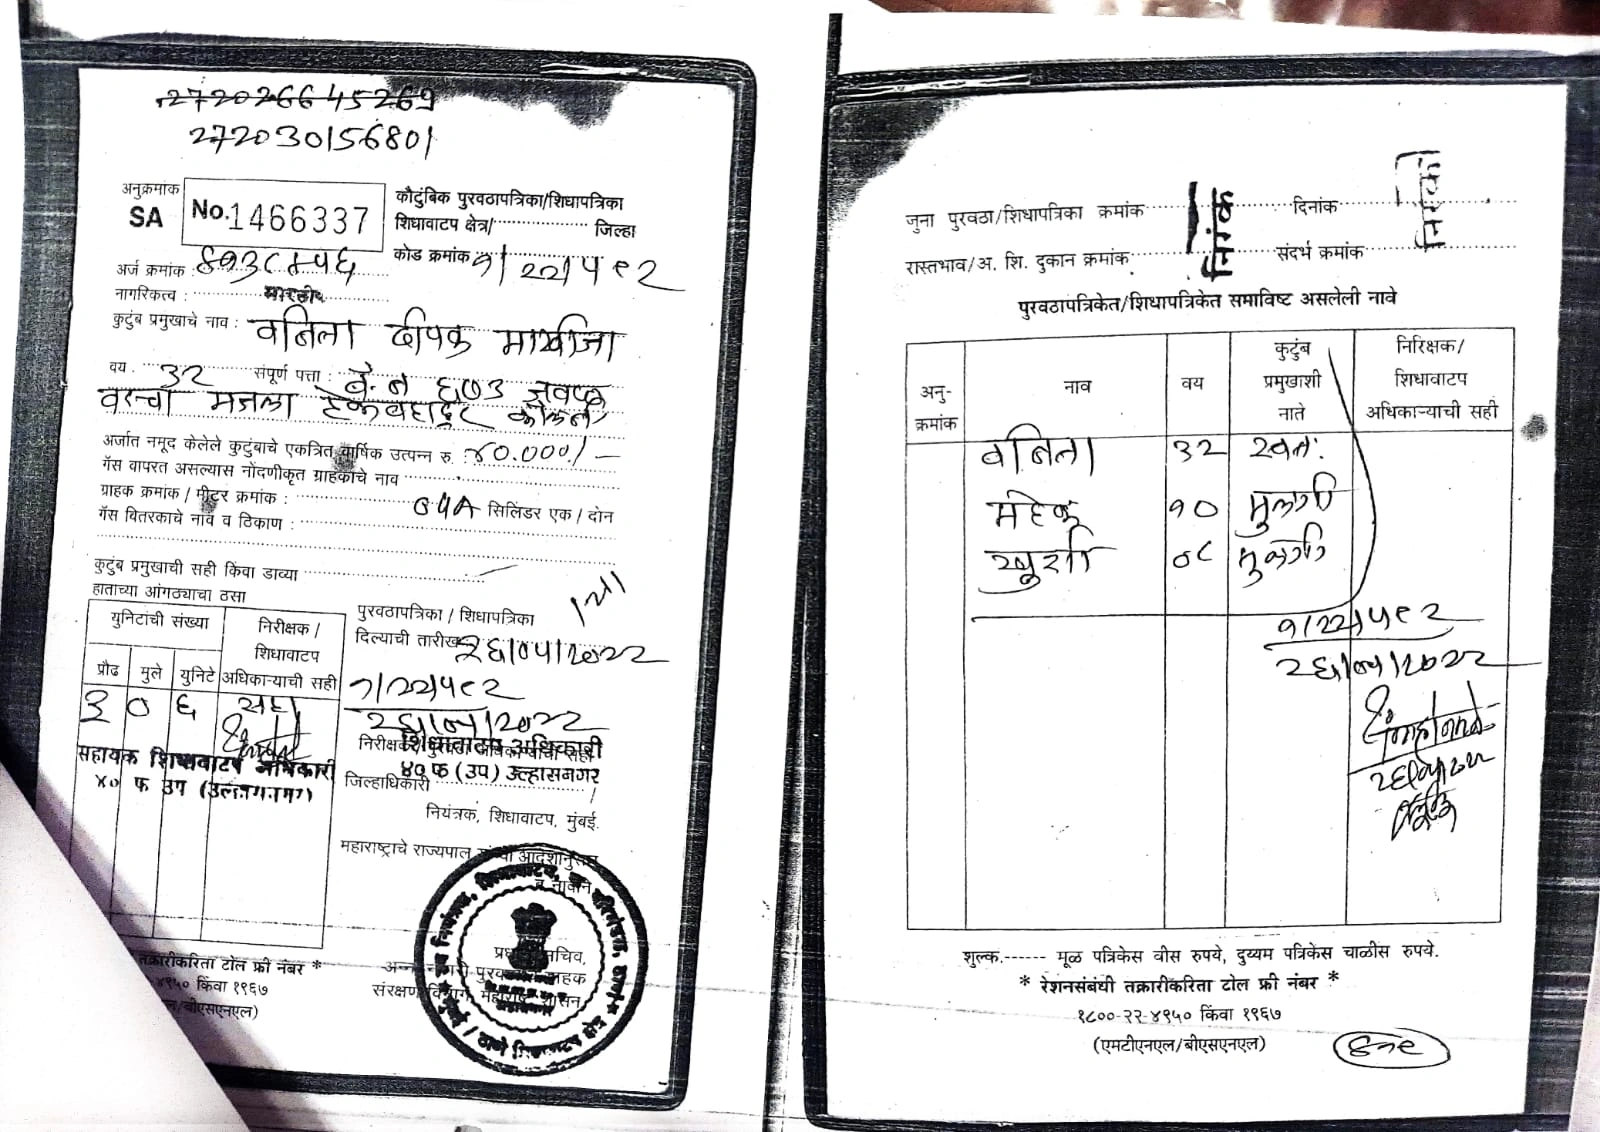 272026645269
272030156801
अनुक्रमांक
SA
No.1466337
कौटुंबिक पुरवठापत्रिका/शिधापत्रिका
शिधावाटप क्षेत्र/ जिल्हा
कोड क्रमांक १/२२/५९२
अर्ज क्रमांक :
नागरिकत्व : भारतीय
कुटुंब प्रमुखाचे नाव : वनिता दीपक माखीजा
वय . 32 संपूर्ण पत्ता : बॅ. नं ६७३
वरचा मजला
अर्जात नमूद केलेले कुटुंबाचे एकत्रित वार्षिक उत्पन्न रु. ४०.०००/-
गॅस वापरत असल्यास नोंदणीकृत ग्राहकाचे नाव
ग्राहक क्रमांक / मीटर क्रमांक : सिलिंडर एक / दोन
गॅस वितरकाचे नाव व ठिकाण :
कुटुंब प्रमुखाची सही किंवा डाव्या
हाताच्या आंगठ्याचा ठसा
युनिटांची संख्या
निरीक्षक /
शिधावाटप
अधिकाऱ्याची सही
प्रौढ मुले युनिटे
३ ० ६ सही
सहायक शिधावाटप अधिकारी
४० फ उप
पुरवठापत्रिका / शिधापत्रिका
दिल्याची तारीख २६/०५/२०२२
१/२२/५९२
२६/०५/२०२२
शिधावाटप अधिकारी
४० फ (उप) उल्हासनगर
जिल्हाधिकारी
नियंत्रक, शिधावाटप, मुंबई.
महाराष्ट्राचे राज्यपाल यांच्या आदेशानुसार
व नावाने
प्रधान सचिव,
अन्न, नागरी पुरवठा व ग्राहक
संरक्षण विभाग, महाराष्ट्र शासन
तक्रारीकरिता टोल फ्री नंबर *
४९५० किंवा १९६७
/बीएसएनएल)
जुना पुरवठा/शिधापत्रिका क्रमांक निरंक दिनांक निरंक
रास्तभाव/अ. शि. दुकान क्रमांक संदर्भ क्रमांक
पुरवठापत्रिकेत/शिधापत्रिकेत समाविष्ट असलेली नावे
अनु-
क्रमांक
नाव
वय
कुटुंब
प्रमुखाशी
नाते
निरिक्षक/
शिधावाटप
अधिकाऱ्याची सही
वनिता 32 स्वतः
महेक १० मुलगी
खुशी ०८ मुलगी
१/२२/५९२
२६/०५/२०२२
शुल्क.------ मूळ पत्रिकेस वीस रुपये, दुय्यम पत्रिकेस चाळीस रुपये.
* रेशनसंबंधी तक्रारीकरिता टोल फ्री नंबर *
१८००-२२-४९५० किंवा १९६७
(एमटीएनएल/बीएसएनएल)